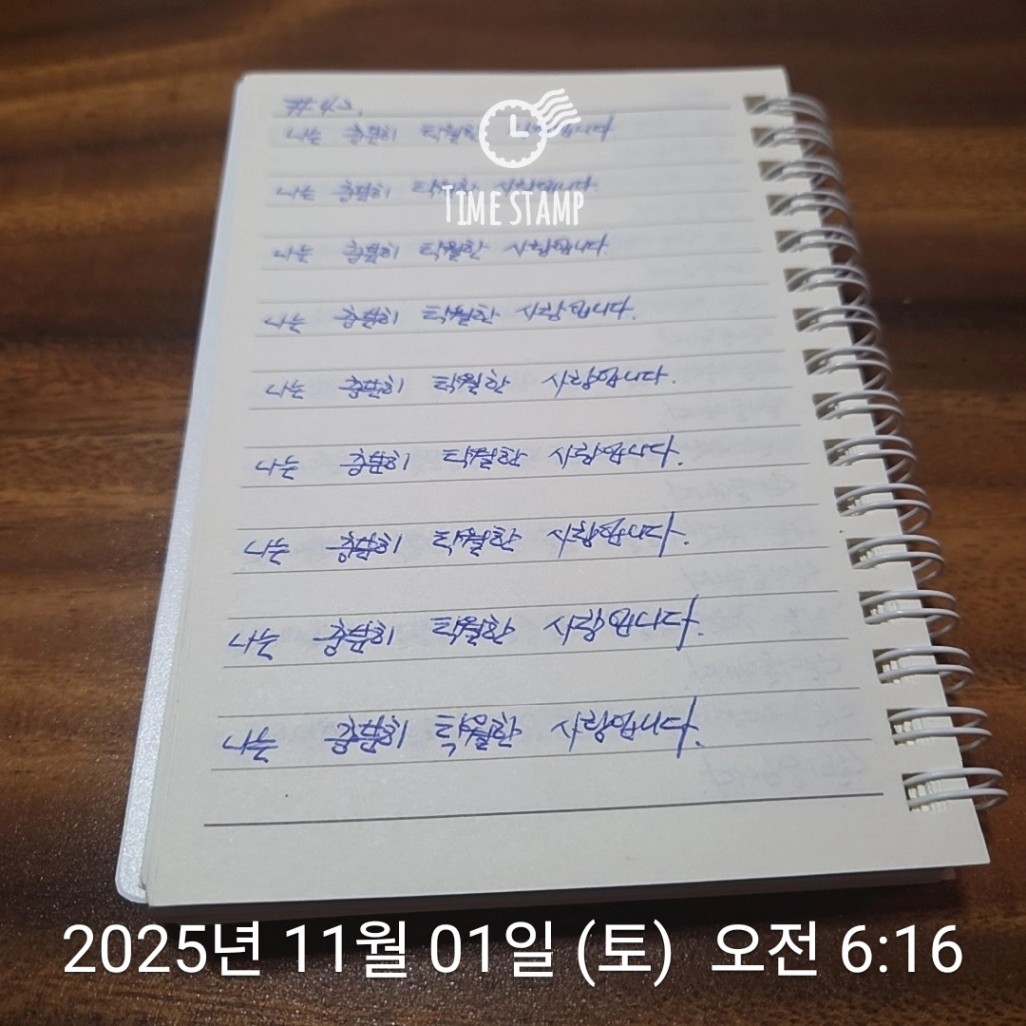 나는 충분히 탁월한 사람입니다.
TIME STAMP
나는 충분히 탁월한 사람입니다.
나는 충분히 탁월한 사람입니다.
나는 충분히 탁월한 사람입니다.
나는 충분히 탁월한 사람입니다.
나는 충분히 탁월한 사람입니다.
나는 충분히 탁월한 사람입니다.
나는 충분히 탁월한 사람입니다.
나는 충분히 탁월한 사람입니다.
2025년 11월 01일 (토) 오전 6:16